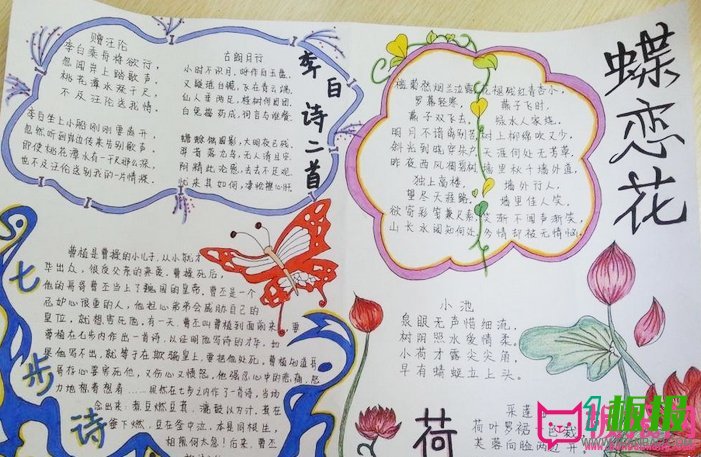 赠汪伦
李白乘舟将欲行,
忽闻岸上踏歌声。
桃花潭水深千尺,
不及汪伦送我情。
李白坐上小船刚刚要离开,
忽然听到岸边传来告别歌声。
即使桃花潭水有一千尺那么深,
也不及汪伦送别我的一片情深。
古朗月行
小时不识月,呼作白玉盘。
又疑瑶台镜,飞在青云端。
仙人垂两足,桂树何团团。
白兔捣药成,问言与谁餐。
蟾蜍蚀圆影,大明夜已残。
羿昔落九乌,天人清且安。
阴精此沦惑,去去不足观。
忧来其如何,凄怆摧心肝
李白诗二首
蝶恋花
槛菊愁烟兰泣露
罗幕轻寒,
燕子双飞去。
明月不谙离别苦
斜光到晓穿朱户
昨夜西风凋碧树
独上高楼,
望尽天涯路。
欲寄彩笺兼尺素
山长水阔知何处
花褪残红青杏小,
燕子飞时,
绿水人家绕。
枝上柳绵吹又少,
天涯何处无芳草。
墙里秋千墙外道,
墙外行人,
墙里佳人笑。
笑渐不闻声渐笑,
多情却被无情恼。
七步诗
曹植是曹操的小儿子,从小就才
华出众,很受父亲的亲爱。曹操死后,
他的哥哥曹丕当上了魏国的皇帝。曹丕是一个
忌妒心很重的人,他担心弟弟会威胁自己的
皇位,就想害死他,有一天,曹丕叫曹植到面前来,要
曹植在七步内作出一首诗,以证明他写诗的才华。如
果他写不出,就等于在欺骗皇上,要把他处死。曹植知道哥
哥存心要害死他,又伤心又愤怒。他强忍心中的悲痛,怒
力地想着想着……果然在七步之内作了一首诗,当场
念出来。煮豆燃豆萁,漉豉以为汁。萁在
釜下燃,豆在釜中泣。本是同根生,
相煎何太急!后来,曹丕
小池
泉眼无声惜细流,
树阴照水爱情柔。
小荷才露尖尖角,
早有蜻蜓立上头。
荷
采莲
荷叶罗裙一色裁
芙蓉向脸两边开
板报